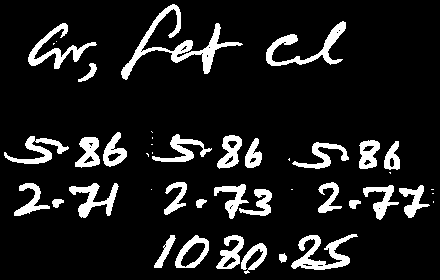 Gr, fet cl
5.86 5.86 5.86
2.71 2.73 2.77
1080.25